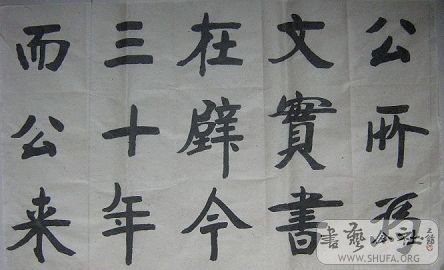 公所為
文實書
在壁今
三十年
而公来
書藝公社
WWW.SHUFA.ORG